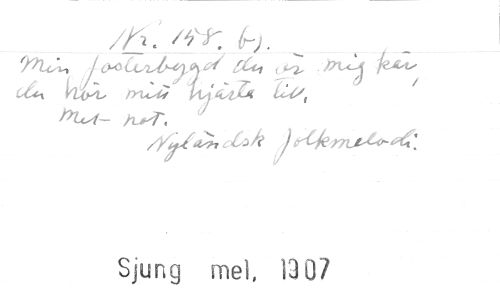 Nr. 158. b).
Min fosterbygd du är mig kär,
du hör mitt hjärta till.
Met not.
Nyländsk folkmelodi.
Sjung mel, 1907